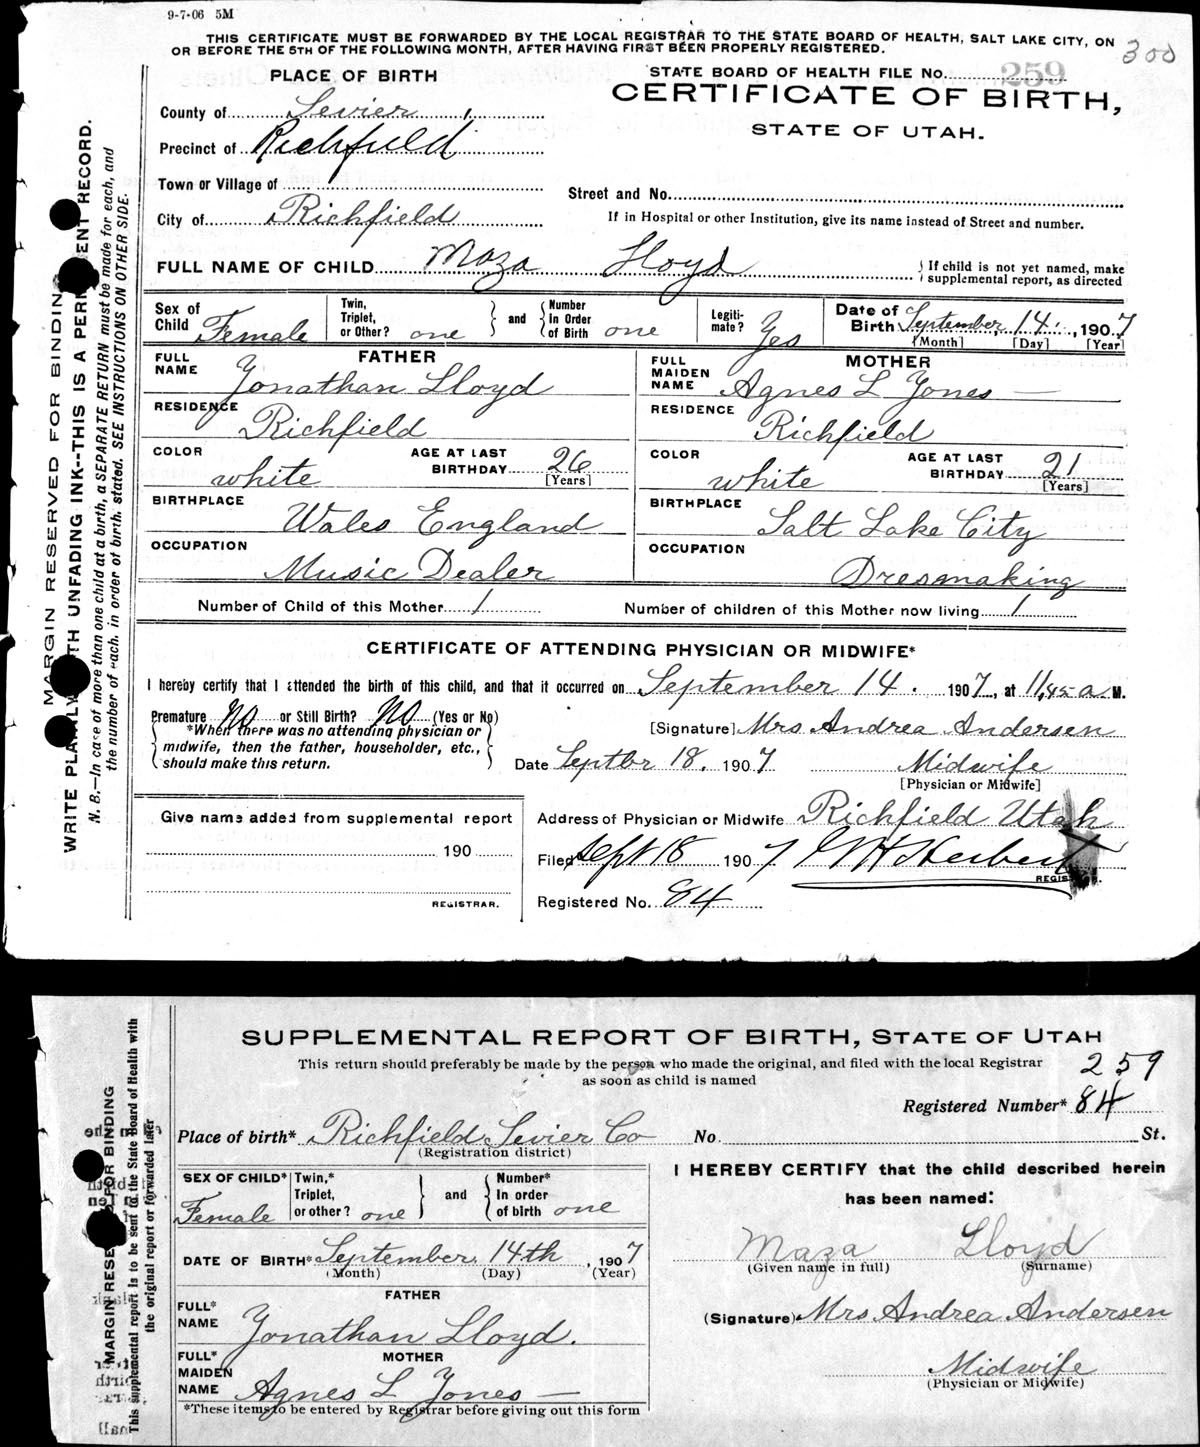 9-7-06 5M
THIS CERTIFICATE MUST BE FORWARDED BY THE LOCAL REGISTRAR TO THE STATE BOARD OF HEALTH, SALT LAKE CITY, ON
OR BEFORE THE 5TH OF THE FOLLOWING MONTH, AFTER HAVING FIRST BEEN PROPERLY REGISTERED.
300
PLACE OF BIRTH
STATE BOARD OF HEALTH FILE No. 259
CERTIFICATE OF BIRTH,
STATE OF UTAH.
County of Sevier
Precinct of Richfield
Town or Village of
Street and No.
City of Richfield
If in Hospital or other Institution, give its name instead of Street and number.
FULL NAME OF CHILD Maza Lloyd
If child is not yet named, make
supplemental report, as directed
Sex of Child Female
Twin, Triplet, or Other? one
and
Number In Order of Birth one
Legiti-mate? Yes
Date of Birth September 14, 1907
[Month] [Day] [Year]
FATHER
MOTHER
FULL NAME Jonathan Lloyd
FULL MAIDEN NAME Agnes L Jones
RESIDENCE Richfield
RESIDENCE Richfield
COLOR white AGE AT LAST BIRTHDAY 26 [Years]
COLOR white AGE AT LAST BIRTHDAY 21 [Years]
BIRTHPLACE Wales England
BIRTHPLACE Salt Lake City
OCCUPATION Music Dealer
OCCUPATION Dresmaking
Number of Child of this Mother 1
Number of children of this Mother now living 1
CERTIFICATE OF ATTENDING PHYSICIAN OR MIDWIFE*
I hereby certify that I attended the birth of this child, and that it occurred on September 14. 1907, at 11,45 a. M.
Premature No or Still Birth? No (Yes or No)
*When there was no attending physician or
midwife, then the father, householder, etc.,
should make this return.
[Signature] Mrs Andrea Andersen
Date Septbr 18. 1907
Midwife
[Physician or Midwife]
Give name added from supplemental report
190
REGISTRAR.
Address of Physician or Midwife Richfield Utah
Filed Sept 18 1907 Herbert
REGISTRAR.
Registered No. 84
MARGIN RESERVED FOR BINDING
WRITE PLAINLY WITH UNFADING INK--THIS IS A PERMANENT RECORD.
N. B.—In case of more than one child at a birth, a SEPARATE RETURN must be made for each, and
the number of each. in order of birth. stated. SEE INSTRUCTIONS ON OTHER SIDE.
SUPPLEMENTAL REPORT OF BIRTH, STATE OF UTAH
This return should preferably be made by the person who made the original, and filed with the local Registrar
as soon as child is named
259
Registered Number* 84
Place of birth* Richfield Sevier Co No. St.
(Registration district)
SEX OF CHILD* Female
Twin,* Triplet, or other? one
and
Number* In order of birth one
I HEREBY CERTIFY that the child described herein
has been named:
Maza Lloyd
(Given name in full) (Surname)
DATE OF BIRTH* September 14th, 1907
(Month) (Day) (Year)
FATHER
FULL* NAME Jonathan Lloyd.
(Signature) Mrs Andrea Andersen
MOTHER
FULL* MAIDEN NAME Agnes L Jones
Midwife
(Physician or Midwife)
*These items to be entered by Registrar before giving out this form
MARGIN RESERVED FOR BINDING
This supplemental report is to be sent to the State Board of Health with
the original report or forwarded later